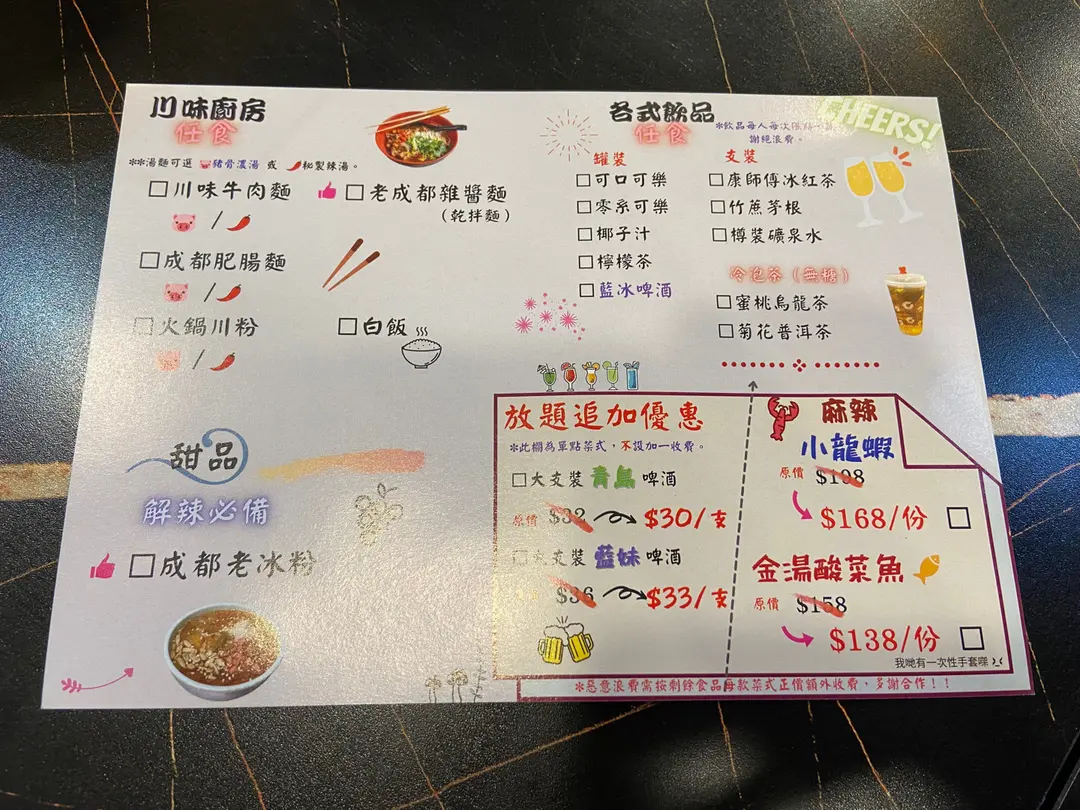 川味廚房
任食
**湯麵可選 豬骨濃湯 或 秘製辣湯。
川味牛肉麵
/
老成都雜醬麵
(乾拌麵)
成都肥腸麵
/
火鍋川粉
/
白飯
甜品
解辣必備
成都老冰粉
各式飲品
任食
*飲品每人每次限
謝絕浪費。
CHEERS!
罐裝
可口可樂
零系可樂
椰子汁
檸檬茶
藍冰啤酒
支裝
康師傅冰紅茶
竹蔗茅根
樽裝礦泉水
冷泡茶(無糖)
蜜桃烏龍茶
菊花普洱茶
放題追加優惠
*此欄為單點菜式,不設加一收費。
大支裝 青島 啤酒
原價 $32 $30/支
大支裝 藍妹 啤酒
$36 $33/支
麻辣
小龍蝦
原價 $198
$168/份
金湯酸菜魚
原價 $158
$138/份
我哋有一次性手套㗎
*惡意浪費需按剩餘食品每款菜式正價額外收費,多謝合作!!